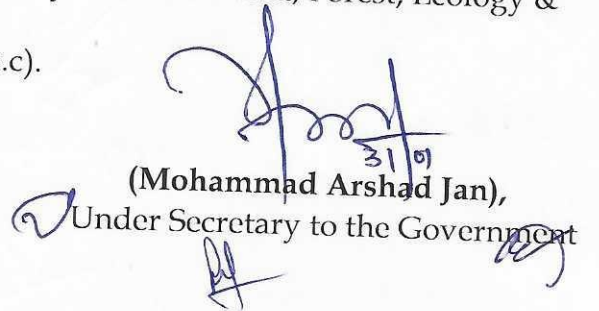 , Forest, Ecology &
.c).
31/01
(Mohammad Arshad Jan),
Under Secretary to the Government